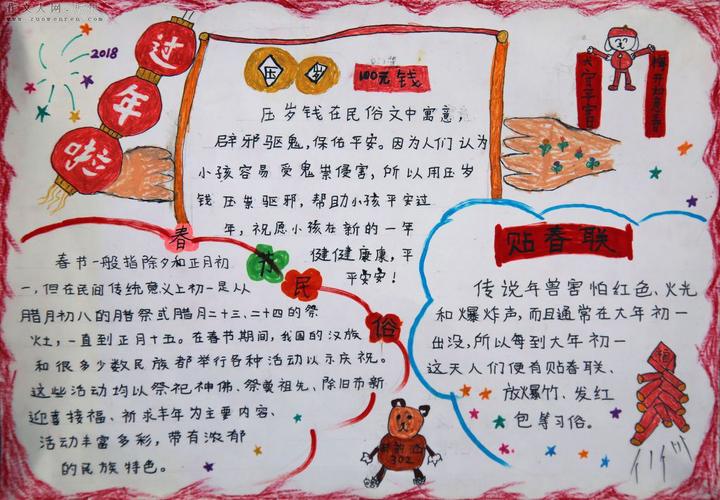 www.zuowenren.com
2018
过
年
啦
压岁
100元钱
压岁钱在民俗文中寓意，
辟邪驱鬼，保佑平安。因为人们认为
小孩容易受鬼祟侵害，所以用压岁
钱压祟驱邪，帮助小孩平安过
年，祝愿小孩在新的一年
健健康康，平
平安安！
春
节
民
俗
春节一般指除夕和正月初
一，但在民间传统意义上初一是从
腊月初八的腊祭或腊月二十三、二十四的祭
灶，一直到正月十五。在春节期间，我国的汉族
和很多少数民族都举行各种活动以示庆祝。
这些活动均以祭祀神佛、祭奠祖先、除旧布新
迎喜接福、祈求丰年为主要内容、
活动丰富多彩，带有浓郁
的民族特色。
贴春联
传说年兽害怕红色、火光
和爆炸声，而且通常在大年初一
出没，所以每到大年初一
这天人们便有贴春联、
放爆竹、发红
包等习俗。
302